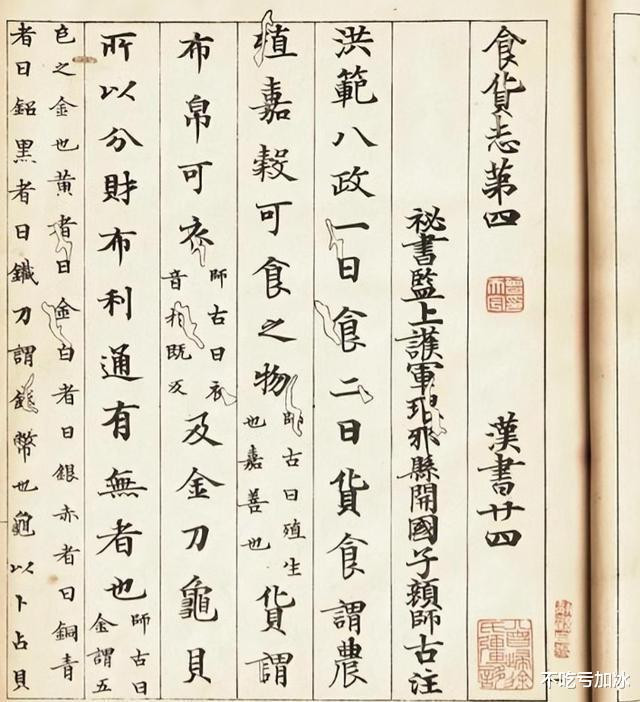 食貨志苐四 漢書廿四
祕書監上護軍琅邪縣開國子顏師古注
洪範八政一曰食二曰貨食謂農
殖嘉穀可食之物師古曰殖生也嘉善也貨謂
布帛可衣師古曰衣音於既反及金刀龜貝
所以分財布利通有無者也師古曰金謂五
色之金也黃者曰金白者曰銀赤者曰銅青
者曰鉛黑者曰鐵刀謂錢幣也龜以卜占貝
不吃亏加冰